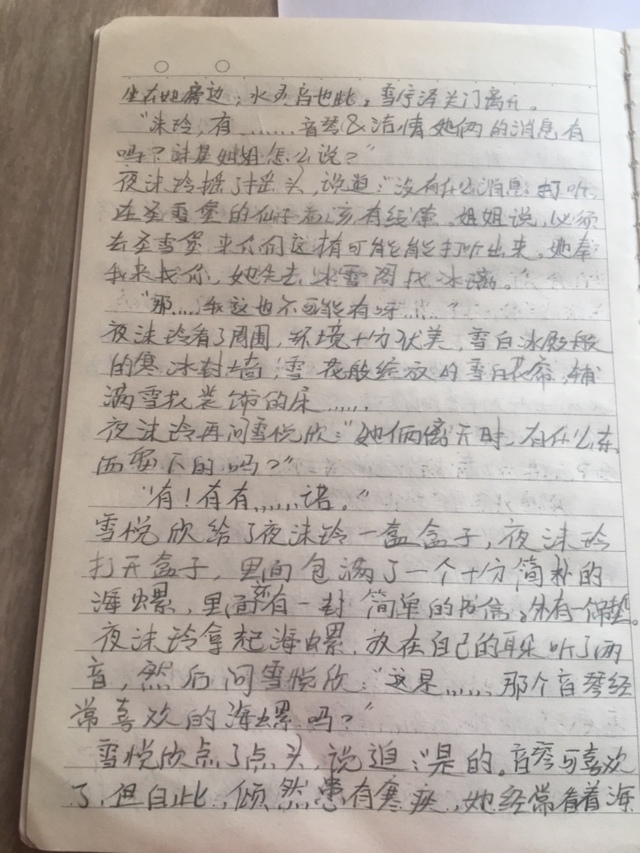 坐在她旁边，水灵音也此。雪停泽关门离开。
“沫玲，有……音琴&洁情她俩的消息有
吗？诗是姐姐怎么说？”
夜沫玲摇了摇头，说道：“没有什么消息，打听
在圣雪堡的仙子应该有线索。姐姐说，必须
去圣雪堡，来你们这有可能能打听出来。她奉
我来找你，她先去冰雪阁找冰璃。
“那……我这也不可能有呀……？
夜沫玲看了周围，环境十分优美，雪白冰殿般
的寒冰封墙，雪花般绽放的雪白花帘，铺
满雪松装饰的床……
夜沫玲再问雪悦欣：“她俩离开时，有什么东
西留下的吗？”
“有！有有……诺。”
雪悦欣给了夜沫玲一盒盒子，夜沫玲
打开盒子，里面包满了一个十分简朴的
海螺，里面有一封简单的书信，外有一锦垫。
夜沫玲拿起海螺，放在自己的耳朵听了两
音，然后问雪悦欣：“这是……那个音琴经
常喜欢的海螺吗？”
雪悦欣点了点头，说道：“是的。音琴可喜欢
了，但自此，倾然患有寒疾，她经常看着海